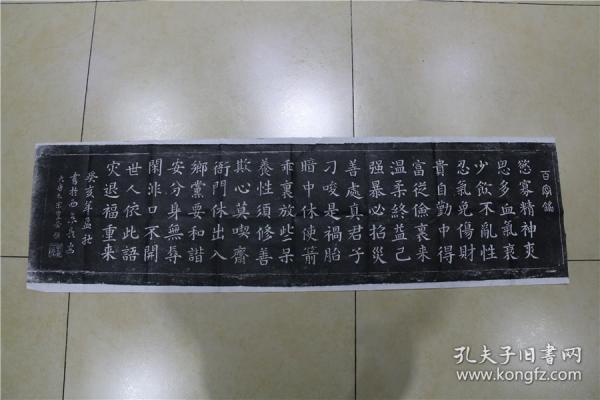 百字銘
慾寡精神爽
思多血氣衰
少飲不亂性
忍氣免傷財
貴自勤中得
富從儉裏来
温柔終益己
强暴必招災
善處真君子
刁唆是禍胎
暗中休使箭
乖裏放些呆
養性須修善
欺心莫喫齋
衙門休出入
鄉黨要和諧
安分身無辱
閑非口不開
世人依此語
灾退福重来
癸亥年孟秋
孔夫子旧书网
www.kongfz.com